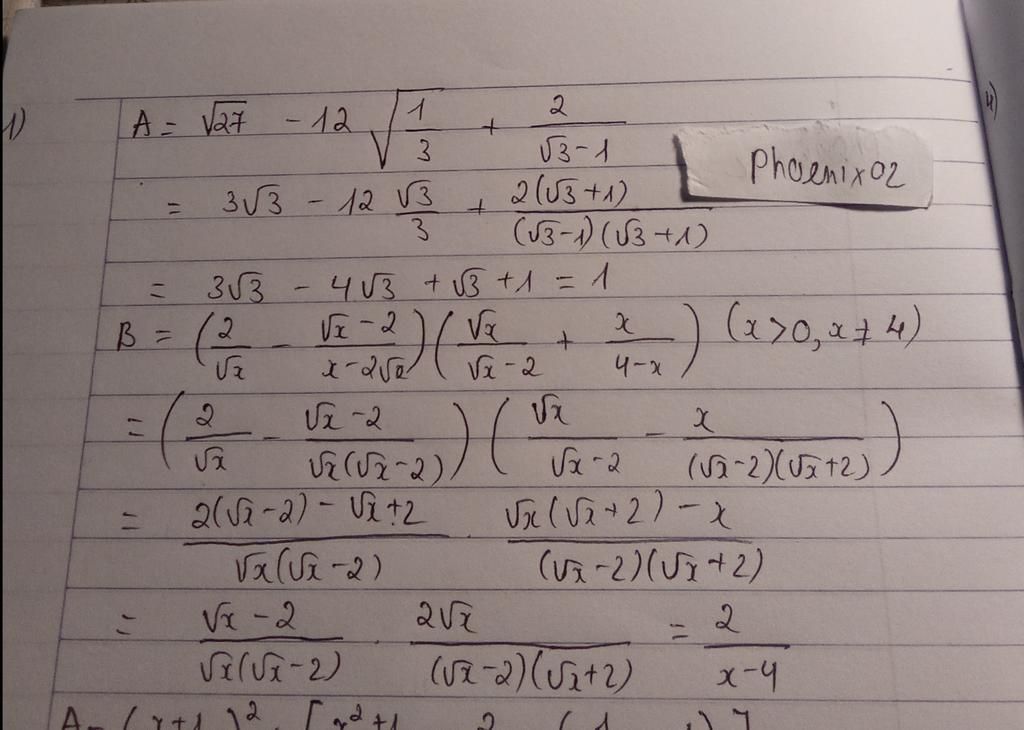 1) A = √27 - 12 √(1/3) + 2/(√3-1)
Phoenix02
= 3√3 - 12 √3/3 + 2(√3+1)/((√3-1)(√3+1))
= 3√3 - 4√3 + √3 + 1 = 1
B = (2/√x - (√x-2)/(x-2√x)) (√x/(√x-2) + x/(4-x)) (x>0, x≠4)
= (2/√x - (√x-2)/(√x(√x-2))) (√x/(√x-2) - x/((√x-2)(√x+2)))
= (2(√x-2) - √x+2)/(√x(√x-2)) . (√x(√x+2) - x)/((√x-2)(√x+2))
= (√x-2)/(√x(√x-2)) . 2√x/((√x-2)(√x+2)) = 2/(x-4)